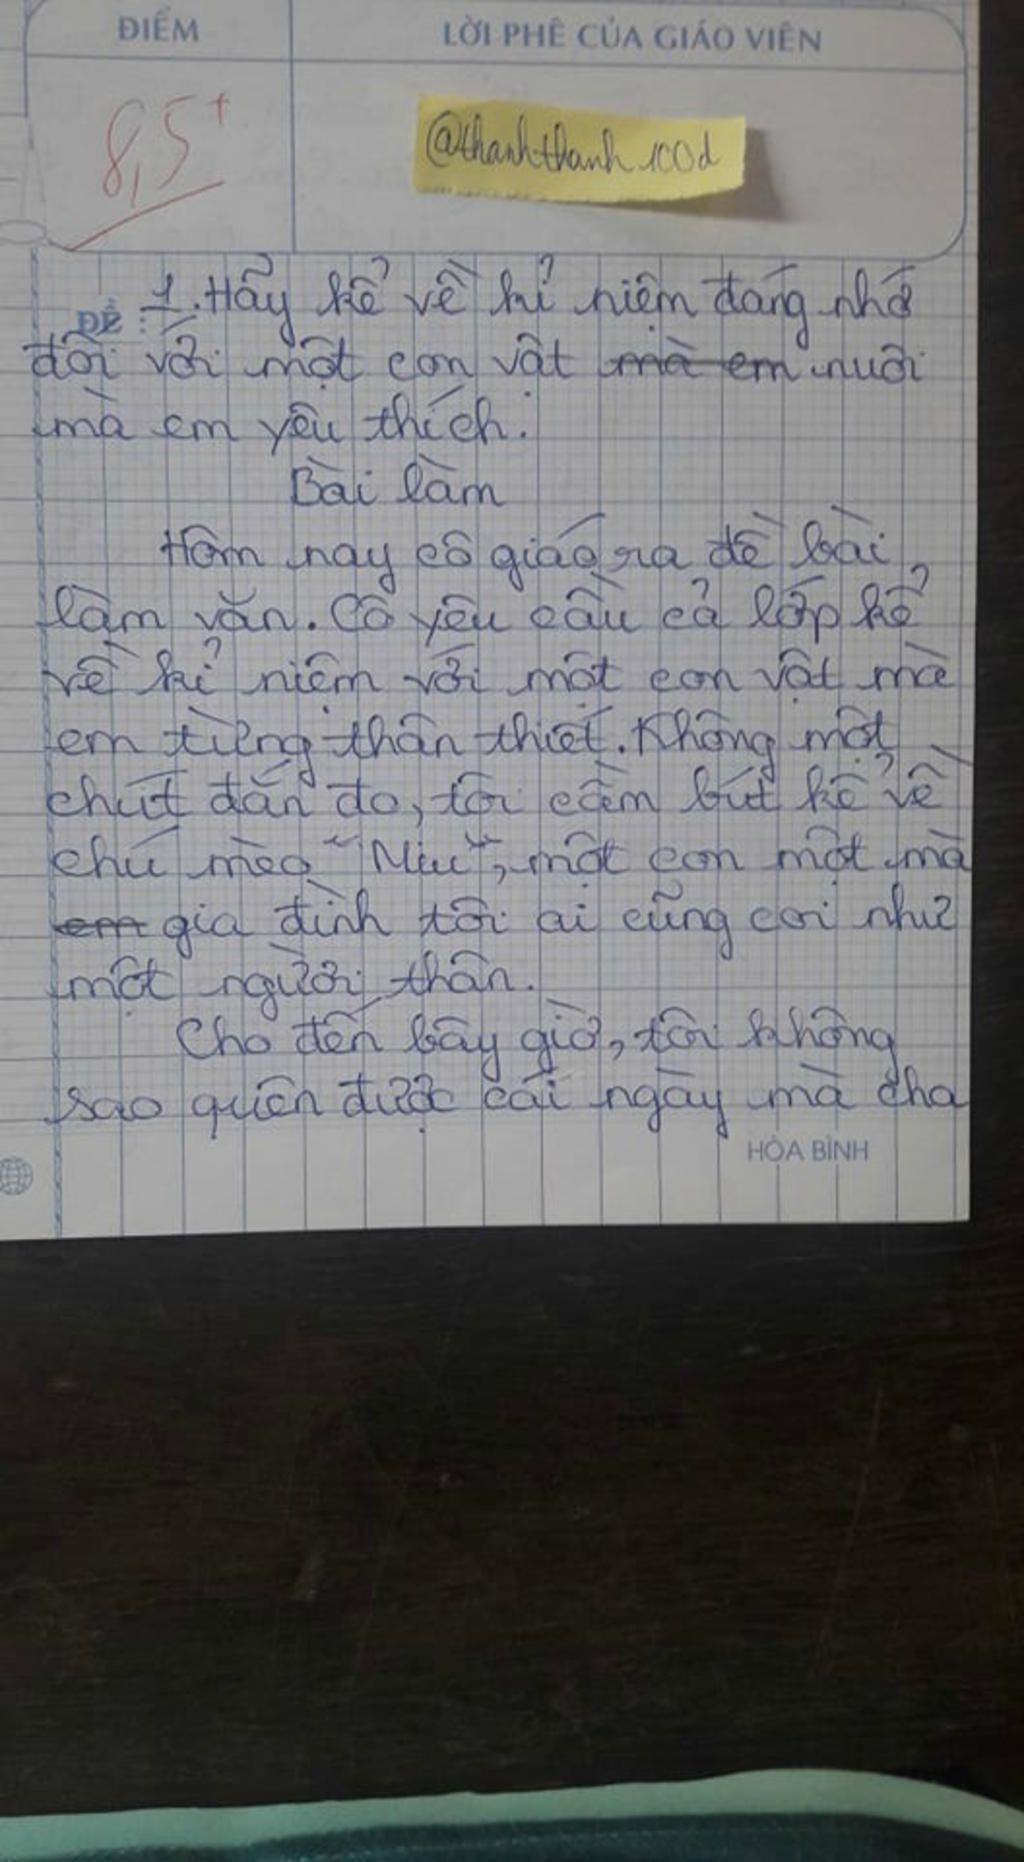 ĐIỂM
LỜI PHÊ CỦA GIÁO VIÊN
8,5+
@thanhthanh.1COd
ĐỀ: 1. Hãy kể về kỉ niệm đáng nhớ
đối với một con vật mà em nuôi
mà em yêu thích.
Bài làm
Hôm nay cô giáo ra đề bài
làm văn. Cô yêu cầu cả lớp kể
về kỉ niệm với một con vật mà
em từng thân thiết. Không một
chút đắn đo, tôi cầm bút kể về
chú mèo "Miu", một con một mà
em gia đình tôi ai cũng coi như
một người thân.
Cho đến bây giờ, tôi không
sao quên được cái ngày mà cha
HÒA BÌNH